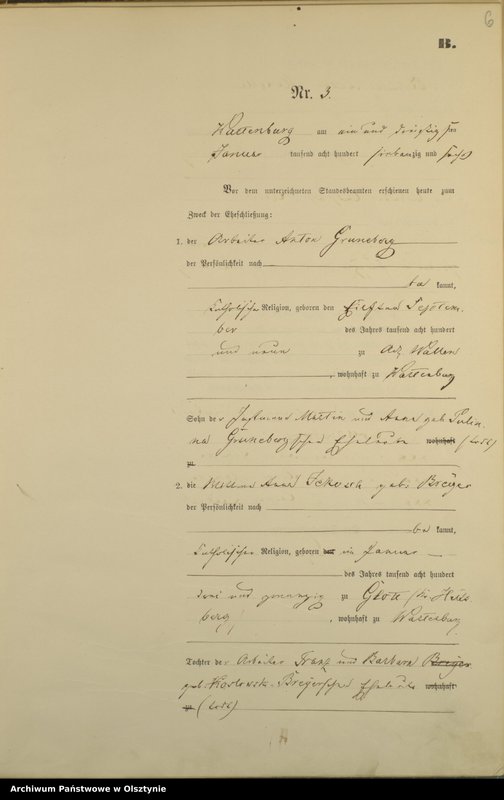 6
B.
Nr. 3.
Wartenburg am ein und dreißig ten
Januar tausend acht hundert siebenzig und sechs
Vor dem unterzeichneten Standesbeamten erschienen heute zum
Zweck der Eheschließung:
1. der Arbeiter Anton Gruneberg
der Persönlichkeit nach
be kannt,
katholischer Religion, geboren den Eilften Septem
ber des Jahres tausend acht hundert
und neun zu Adl. Wallen
, wohnhaft zu Wartenburg
Sohn der Martin und Anna geb.
Grunebergschen Eheleute wohnhaft (todt)
zu
2. die Wittwe Anna geb. Breyer
der Persönlichkeit nach
be kannt,
katholischer Religion, geboren den im Januar
des Jahres tausend acht hundert
zwei und zwanzig zu Glottau (Kr. Heils
berg) , wohnhaft zu Wartenburg
Tochter der Arbeiter Franz und Barbara Breyer
geb. Koslowski Breyerschen Eheleute wohnhaft
zu (todt)
Archiwum Państwowe w Olsztynie